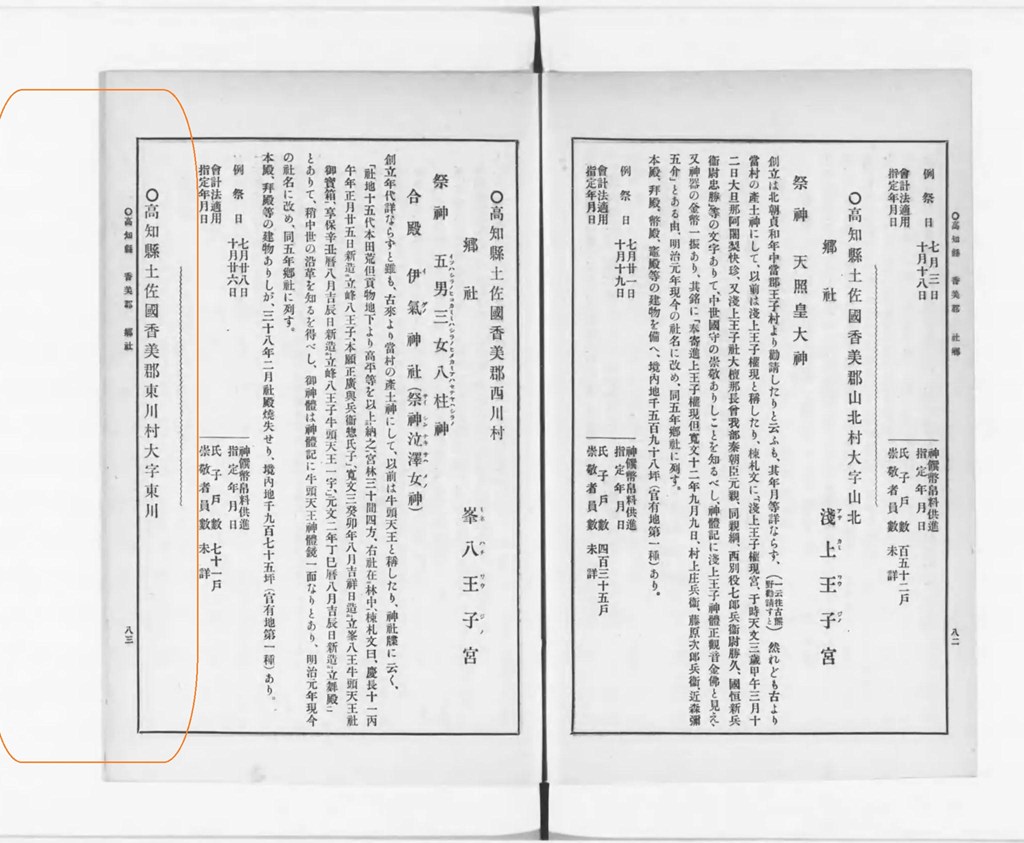 〇高知縣 香美郡 社鄕
八二
例祭日 七月三日
十月十八日
會計法適用
指定年月日
神饌幣帛料供進
指定年月日
氏子戶數 百五十二戶
崇敬者員數 未詳
〇高知縣土佐國香美郡山北村大字山北
鄕社 淺上王子宮
祭神 天照皇大神
創立は北朝貞和年中當郡王子村より勸請したりと云ふも、其年月等詳ならず、(一云往古熊野勸請すと)然れども古より
當村の產土神にして、以前は淺上王子權現と稱したり、棟札文に「淺上王子權現宮、于時天文三歲甲午三月十
二日大旦那阿闍梨快珍、又淺上王子社大檀那長曾我部秦朝臣元親、同親綱、西別役七郞兵衞尉勝久、國恒新兵
衞尉忠勝」等の文字ありて、中世國守の崇敬ありしことを知るべし、神體記に淺上王子神體正觀音金佛と見え、
又神器の金幣一振あり、其銘に「奉寄進上王子權現但寬文十二年九月九日、村上庄兵衞、藤原次郞兵衞、近森彌
五介」とある由、明治元年現今の社名に改め、同五年鄕社に列す。
本殿、拜殿、幣殿、竈殿等の建物を備へ、境內地千五百九十八坪(官有地第一種)あり。
例祭日 七月廿一日
十月十九日
會計法適用
指定年月日
神饌幣帛料供進
指定年月日
氏子戶數 四百三十五戶
崇敬者員數 未詳
〇高知縣土佐國香美郡西川村
鄕社 峯八王子宮
祭神 五男三女八柱神
合殿 伊氣神社(祭神泣澤女神)
創立年代詳ならずと雖も、古來より當村の產土神にして、以前は牛頭天王と稱したり、神社牒に云く、
「社地十五代本田荒但貢物地下より高平等を以上納之、宮林三十間四方、右社在林中、棟札文曰、慶長十一丙
午年正月廿五日新造立峰八王子、本願正廣與兵衞惣氏子、寬文三癸卯年八月吉祥日造立峯八王牛頭天王社
御寶箱、享保辛丑曆八月吉辰日新造立峰八王子牛頭天王一宇、元文二年丁巳曆八月吉辰日新造立舞殿」
とありて、稍中世の沿革を知るを得べし、御神體は神體記に牛頭天王神體鏡一面なりとあり、明治元年現今
の社名に改め、同五年鄕社に列す。
本殿、拜殿等の建物ありしが、三十八年二月社殿燒失せり、境內地千九百七十五坪(官有地第一種)あり。
例祭日 七月廿八日
十月廿六日
會計法適用
指定年月日
神饌幣帛料供進
指定年月日
氏子戶數 七十一戶
崇敬者員數 未詳
〇高知縣土佐國香美郡東川村大字東川
〇高知縣 香美郡 鄕社
八三